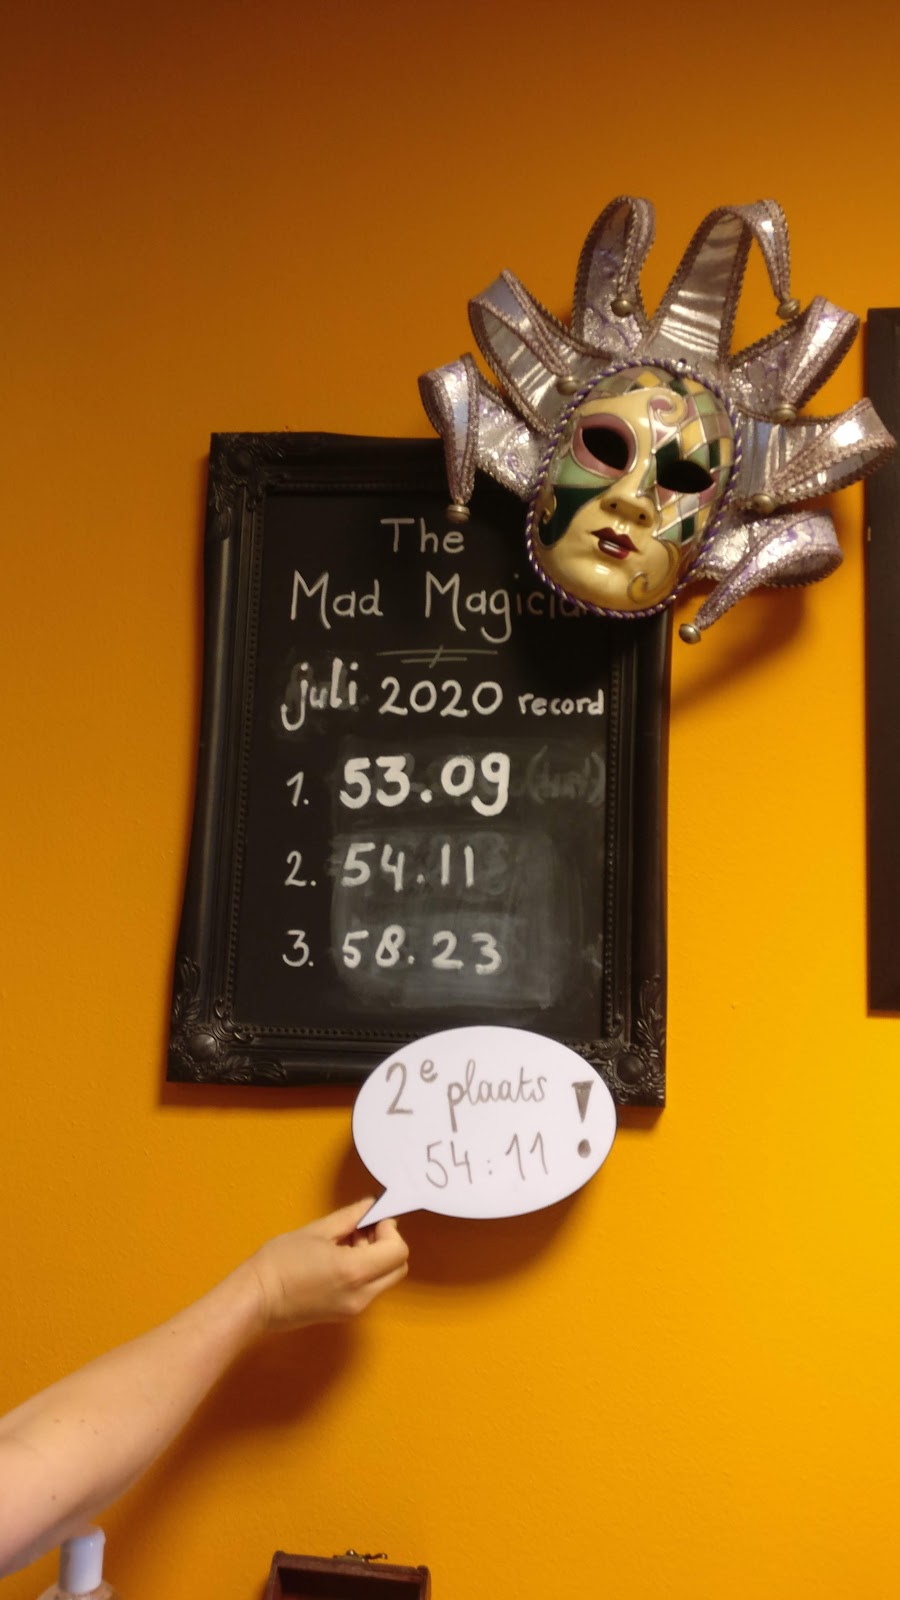 The
Mad Magicia
juli 2020 record
1. 53.09
2. 54.11
3. 58.23
2e plaats !
54:11